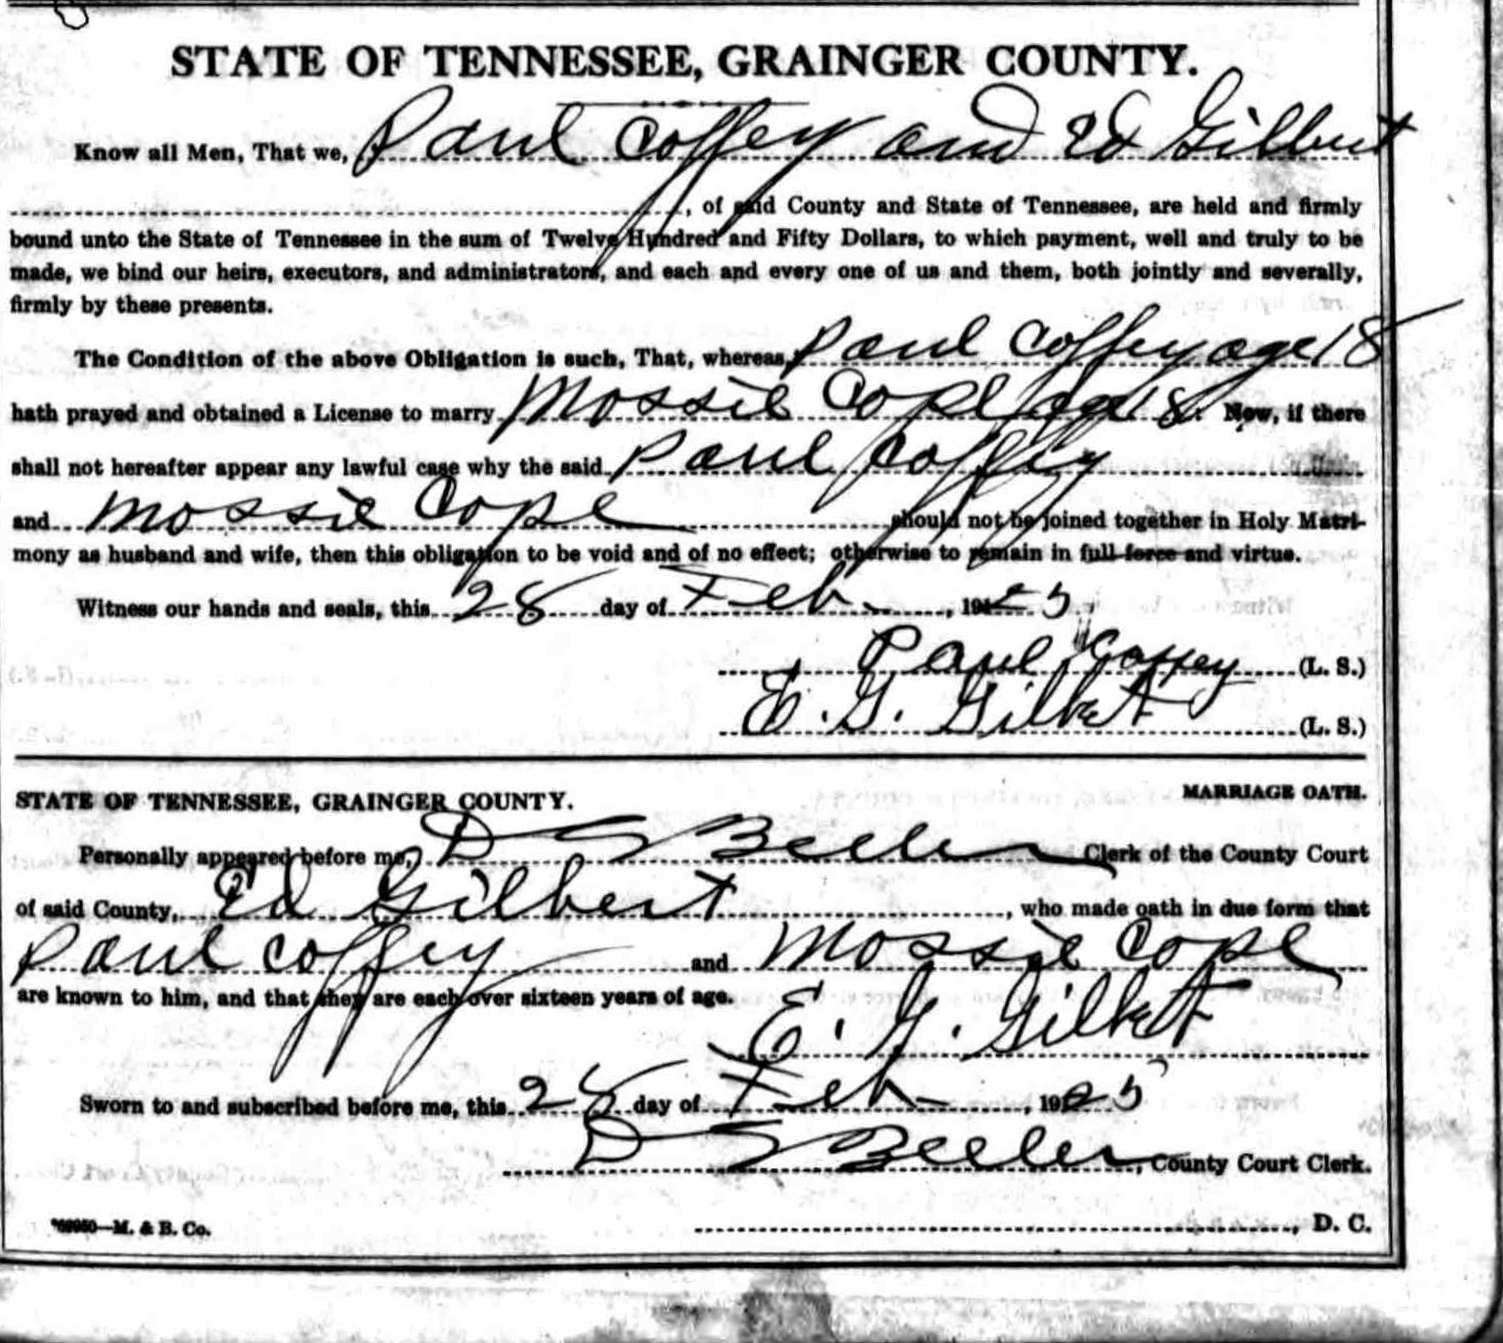 STATE OF TENNESSEE, GRAINGER COUNTY.
Know all Men, That we, Paul Coffey and Ed Gilbert
, of said County and State of Tennessee, are held and firmly
bound unto the State of Tennessee in the sum of Twelve Hundred and Fifty Dollars, to which payment, well and truly to be
made, we bind our heirs, executors, and administrators, and each and every one of us and them, both jointly and severally,
firmly by these presents.
The Condition of the above Obligation is such, That, whereas, Paul Coffey age 18
hath prayed and obtained a License to marry Mossie Cope age 18. Now, if there
shall not hereafter appear any lawful case why the said Paul Coffey
and Mossie Cope should not be joined together in Holy Matri-
mony as husband and wife, then this obligation to be void and of no effect; otherwise to remain in full force and virtue.
Witness our hands and seals, this 28 day of Feb , 1925
Paul Coffey (L. S.)
E. G. Gilbert (L. S.)
STATE OF TENNESSEE, GRAINGER COUNTY. MARRIAGE OATH.
Personally appeared before me, D Beeler Clerk of the County Court
of said County, Ed Gilbert , who made oath in due form that
Paul Coffey and Mossie Cope
are known to him, and that they are each over sixteen years of age.
E. G. Gilbert
Sworn to and subscribed before me, this 28 day of Feb , 1925
D Beeler, County Court Clerk.
—M. & B. Co. , D. C.